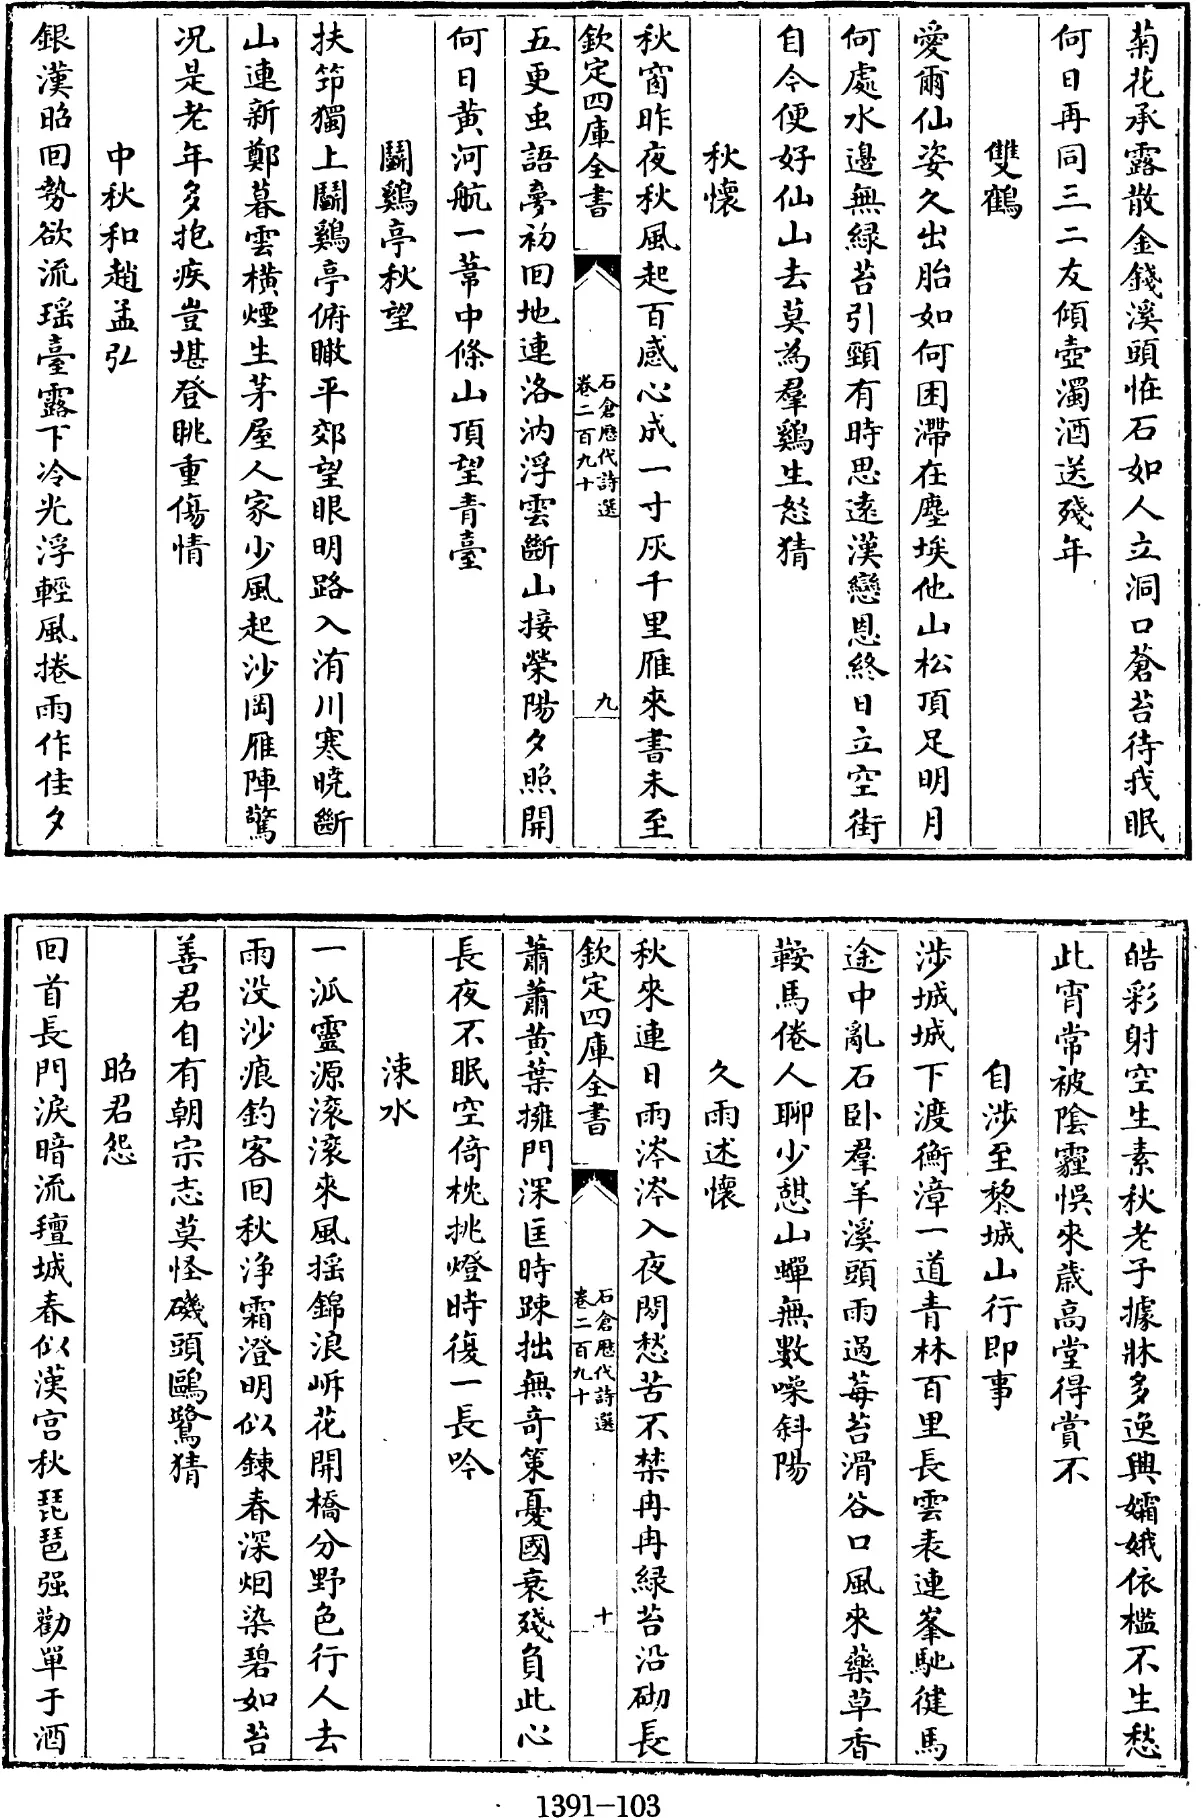 菊花承露散金錢溪頭恠石如人立洞口蒼苔待我眠
何日再同三二友傾壺濁酒送殘年
雙鶴
愛爾仙姿久出胎如何困滯在塵埃他山松頂足明月
何處水邊無綠苔引頸有時思遠漢戀恩終日立空街
自今便好仙山去莫為羣鷄生怒猜
秋懷
秋窗昨夜秋風起百感心成一寸灰千里雁來書未至
欽定四庫全書
石倉歷代詩選
卷二百九十
九
五更虫語夢初回地連洛汭浮雲斷山接滎陽夕照開
何日黄河航一葦中條山頂望青臺
鬬鷄亭秋望
扶筇獨上鬬鷄亭俯瞰平郊望眼明路入洧川寒曉斷
山連新鄭暮雲橫煙生茅屋人家少風起沙岡雁陣驚
况是老年多抱疾豈堪登眺重傷情
中秋和趙孟弘
銀漢昭回勢欲流瑶臺露下冷光浮輕風捲雨作佳夕
皓彩射空生素秋老子據牀多逸興孀娥依檻不生愁
此宵常被陰霾悞來歲高堂得賞不
自涉至黎城山行即事
涉城城下渡衡漳一道青林百里長雲表連峯馳健馬
途中亂石卧羣羊溪頭雨過莓苔滑谷口風來藥草香
鞍馬倦人聊少憩山蟬無數噪斜陽
久雨述懷
秋來連日雨涔涔入夜閙愁苦不禁冉冉綠苔沿砌長
欽定四庫全書
石倉歷代詩選
卷二百九十
十
蕭蕭黄葉擁門深匡時踈拙無奇策憂國衰殘負此心
長夜不眠空倚枕挑燈時復一長吟
涑水
一泒靈源滚滚來風摇錦浪㟁花開橋分野色行人去
雨没沙痕釣客回秋净霜澄明似鍊春深烟染碧如苔
善君自有朝宗志莫怪磯頭鷗鷺猜
昭君怨
回首長門淚暗流氊城春似漢宫秋琵琶强勸單于酒
1391-103